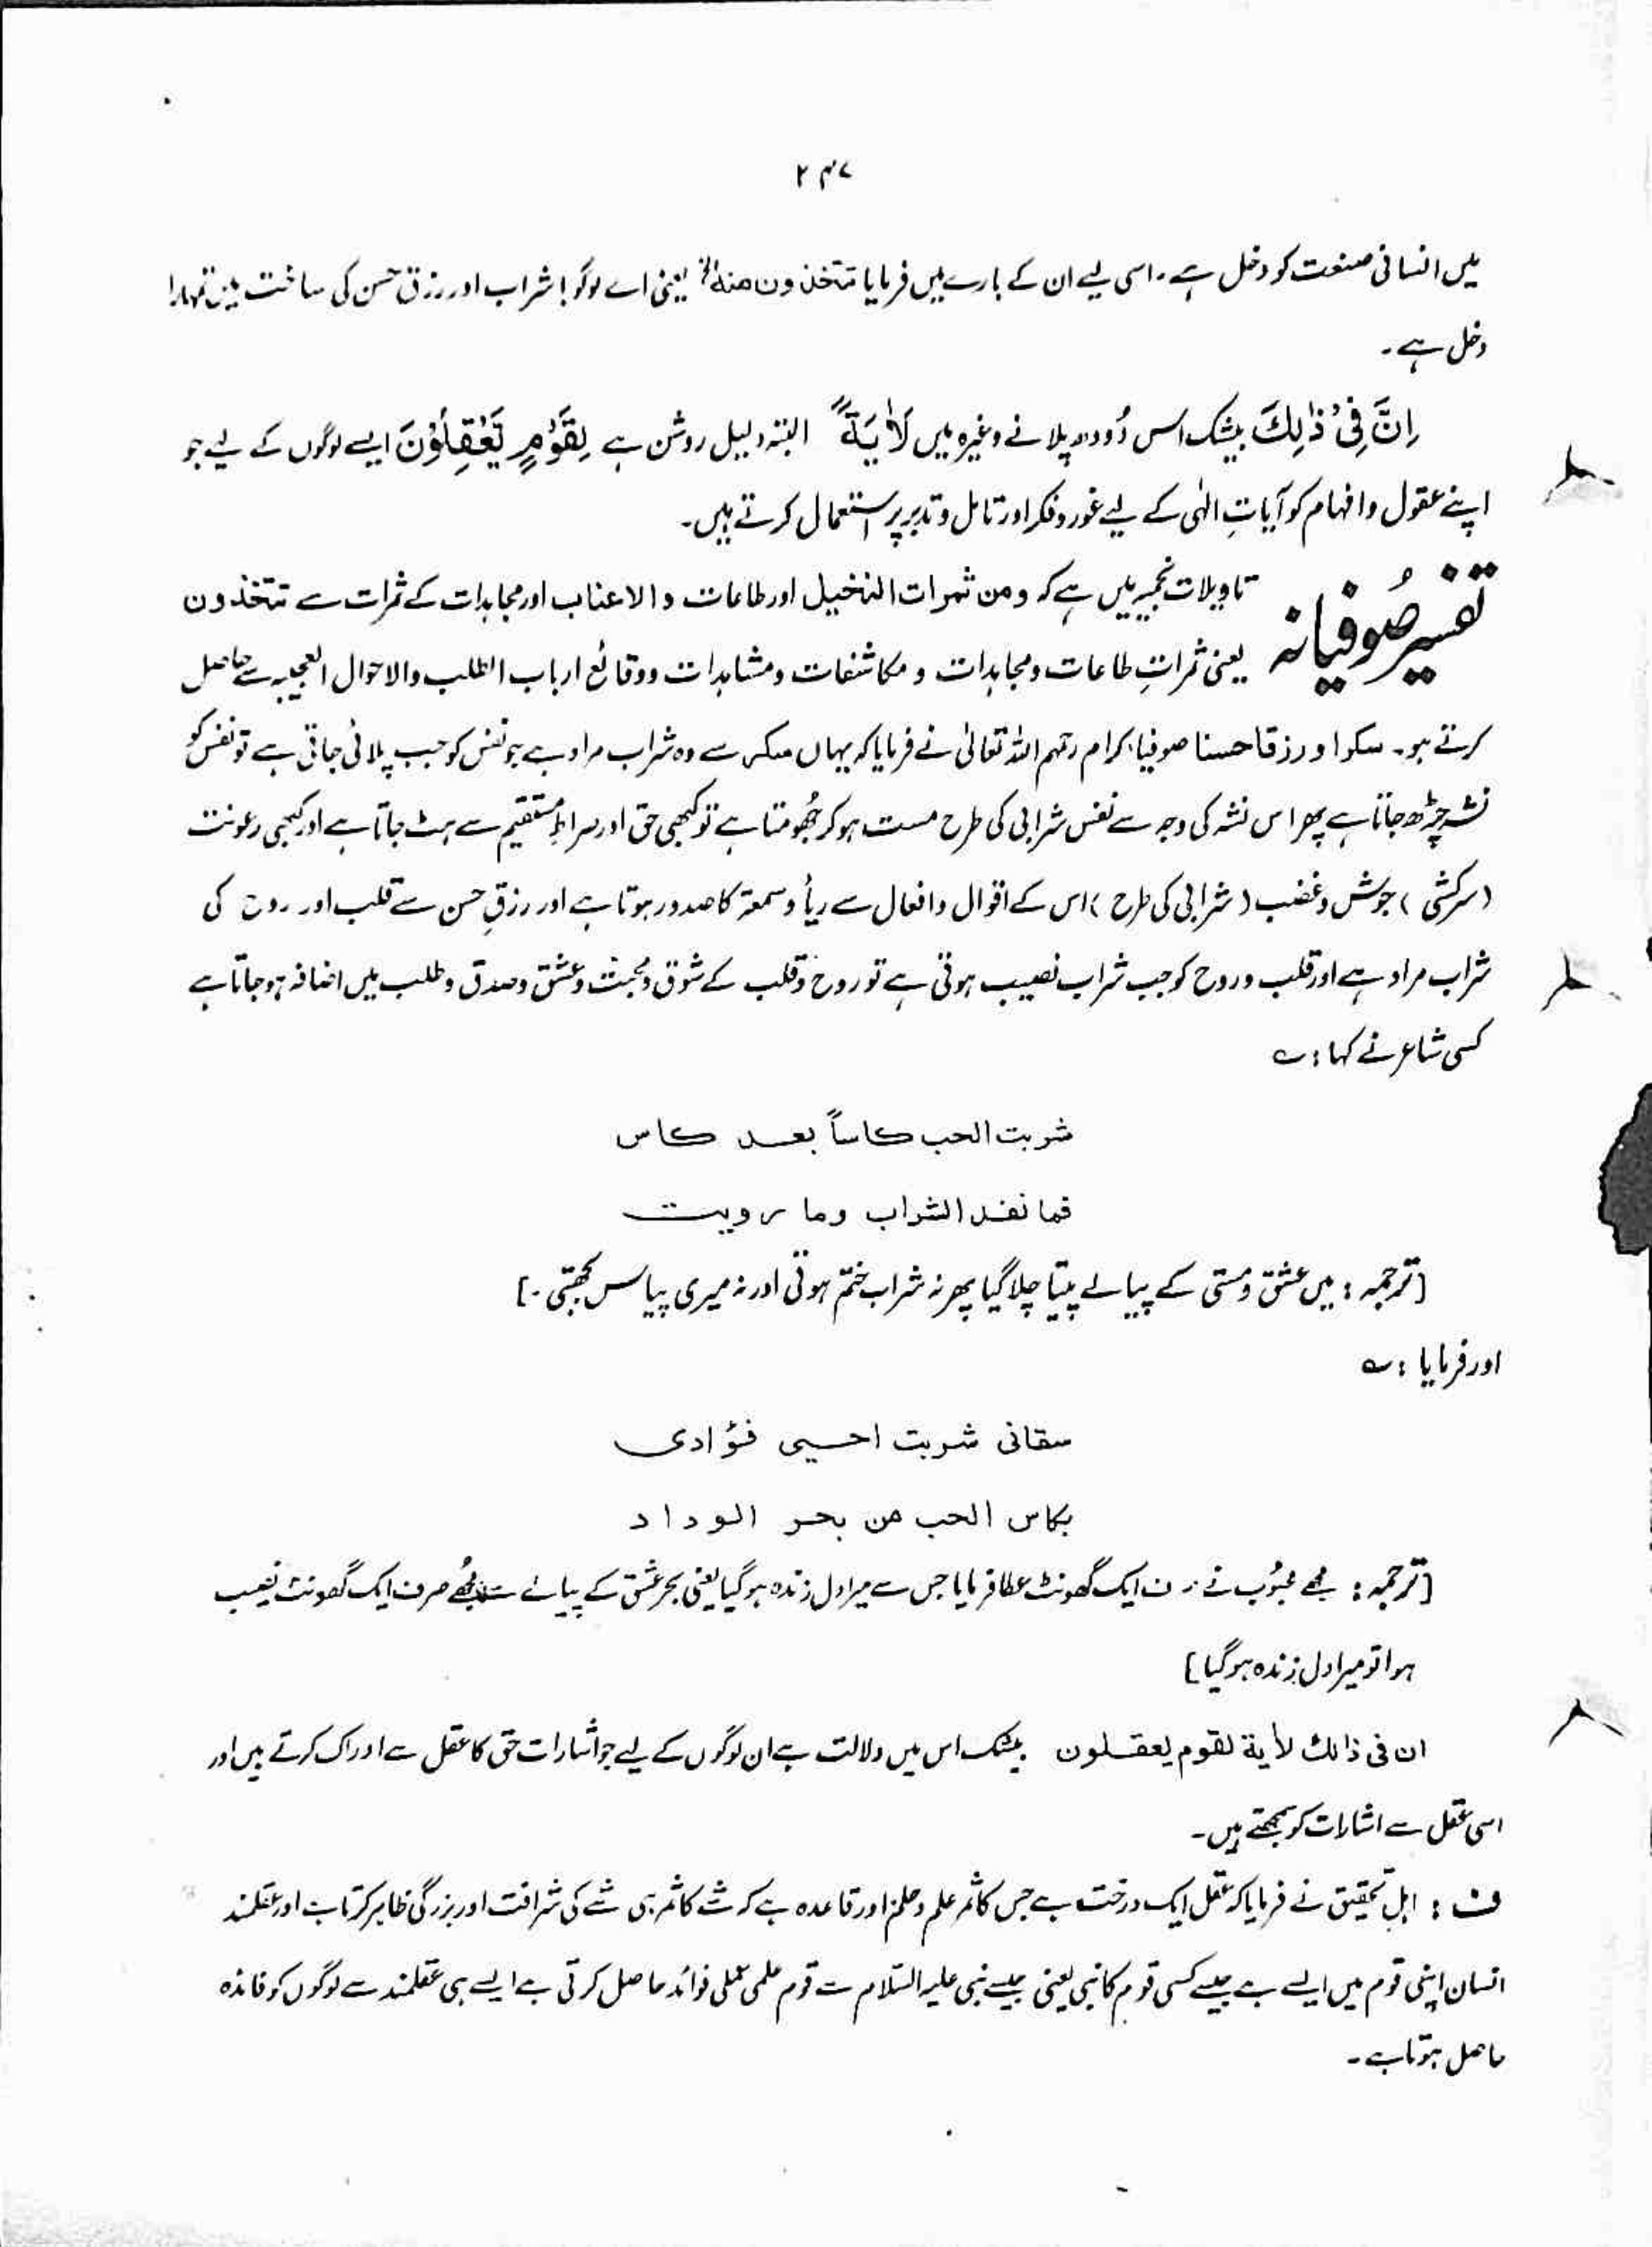 ۲۴۷
میں انسانی صنعت کو دخل ہے۔ اسی لیے ان کے بارے میں فرمایا تتخذون منہ الخ یعنی اے لوگو! شراب اور رزق حسن کی ساخت میں تمہارا
دخل ہے۔
اِنَّ فِیْ ذٰلِكَ بیشک اس دُودھ پلانے وغیرہ میں لَاٰیَةً البتہ دلیل روشن ہے لِقَوْمٍ یَّعْقِلُوْنَ ایسے لوگوں کے لیے جو
اپنے عقول و افہام کو آیاتِ الٰہی کے لیے غور و فکر اور تامل و تدبر پر استعمال کرتے ہیں۔
تفسیر صُوفیانہ تاویلات نجمیہ میں ہے کہ ومن ثمرات النخیل اور طاعات والاعناب اور مجاہدات کے ثمرات سے تتخذون
یعنی ثمراتِ طاعات و مجاہدات و مکاشفات و مشاہدات و وقائع ارباب الطلب والاحوال العجیبہ سے حاصل
کرتے ہو۔ سکرا و رزقا حسنا صوفیاء کرام رحمہم اللہ تعالیٰ نے فرمایا کہ یہاں سکر سے وہ شراب مراد ہے جو نفس کو جب پلائی جاتی ہے تو نفس کو
نشہ چڑھ جاتا ہے پھر اس نشہ کی وجہ سے نفس شرابی کی طرح مست ہو کر جُھومتا ہے تو کبھی حق اور صراطِ مستقیم سے ہٹ جاتا ہے اور کبھی رعونت
(سرکشی) جوش و غضب (شرابی کی طرح) اس کے اقوال و افعال سے ریأ و سمعۃ کا صدور ہوتا ہے اور رزقِ حسن سے قلب اور روح کی
شراب مراد ہے اور قلب و روح کو جب شراب نصیب ہوتی ہے تو روح و قلب کے شوق و محبت و عشق و صدق و طلب میں اضافہ ہو جاتا ہے
کسی شاعر نے کہا : ؎
شربت الحب کاساً بعد کاس
فما نفد الشراب وما رویت
[ترجمہ : میں عشق و مستی کے پیالے پیتا چلا گیا پھر نہ شراب ختم ہوتی اور نہ میری پیاس بجھتی۔]
اور فرمایا : ؎
سقانی شربت احیی فؤادی
بکاس الحب من بحر الوداد
[ترجمہ : مجھے محبُوب نے ایک گھونٹ عطا فرمایا جس سے میرا دل زندہ ہو گیا یعنی بحرِ عشق کے پیالے سے مجھے صرف ایک گھونٹ نصیب
ہوا تو میرا دل زندہ ہو گیا]
ان فی ذالك لأیة لقوم یعقلون بیشک اس میں دلالت ہے ان لوگوں کے لیے جو اشارات حق کا عقل سے ادراک کرتے ہیں اور
اسی عقل سے اشارات کو سمجھتے ہیں۔
ف : اہلِ تحقیق نے فرمایا کہ عقل ایک درخت ہے جس کا ثمر علم و حلم اور قاعدہ ہے کہ شے کا ثمر ہی شے کی شرافت اور بزرگی ظاہر کرتا ہے اور عقلمند
انسان اپنی قوم میں ایسے ہے جیسے کسی قوم کا نبی یعنی جیسے نبی علیہ السّلام سے قوم علمی عملی فوائد حاصل کرتی ہے ایسے ہی عقلمند سے لوگوں کو فائدہ
حاصل ہوتا ہے۔